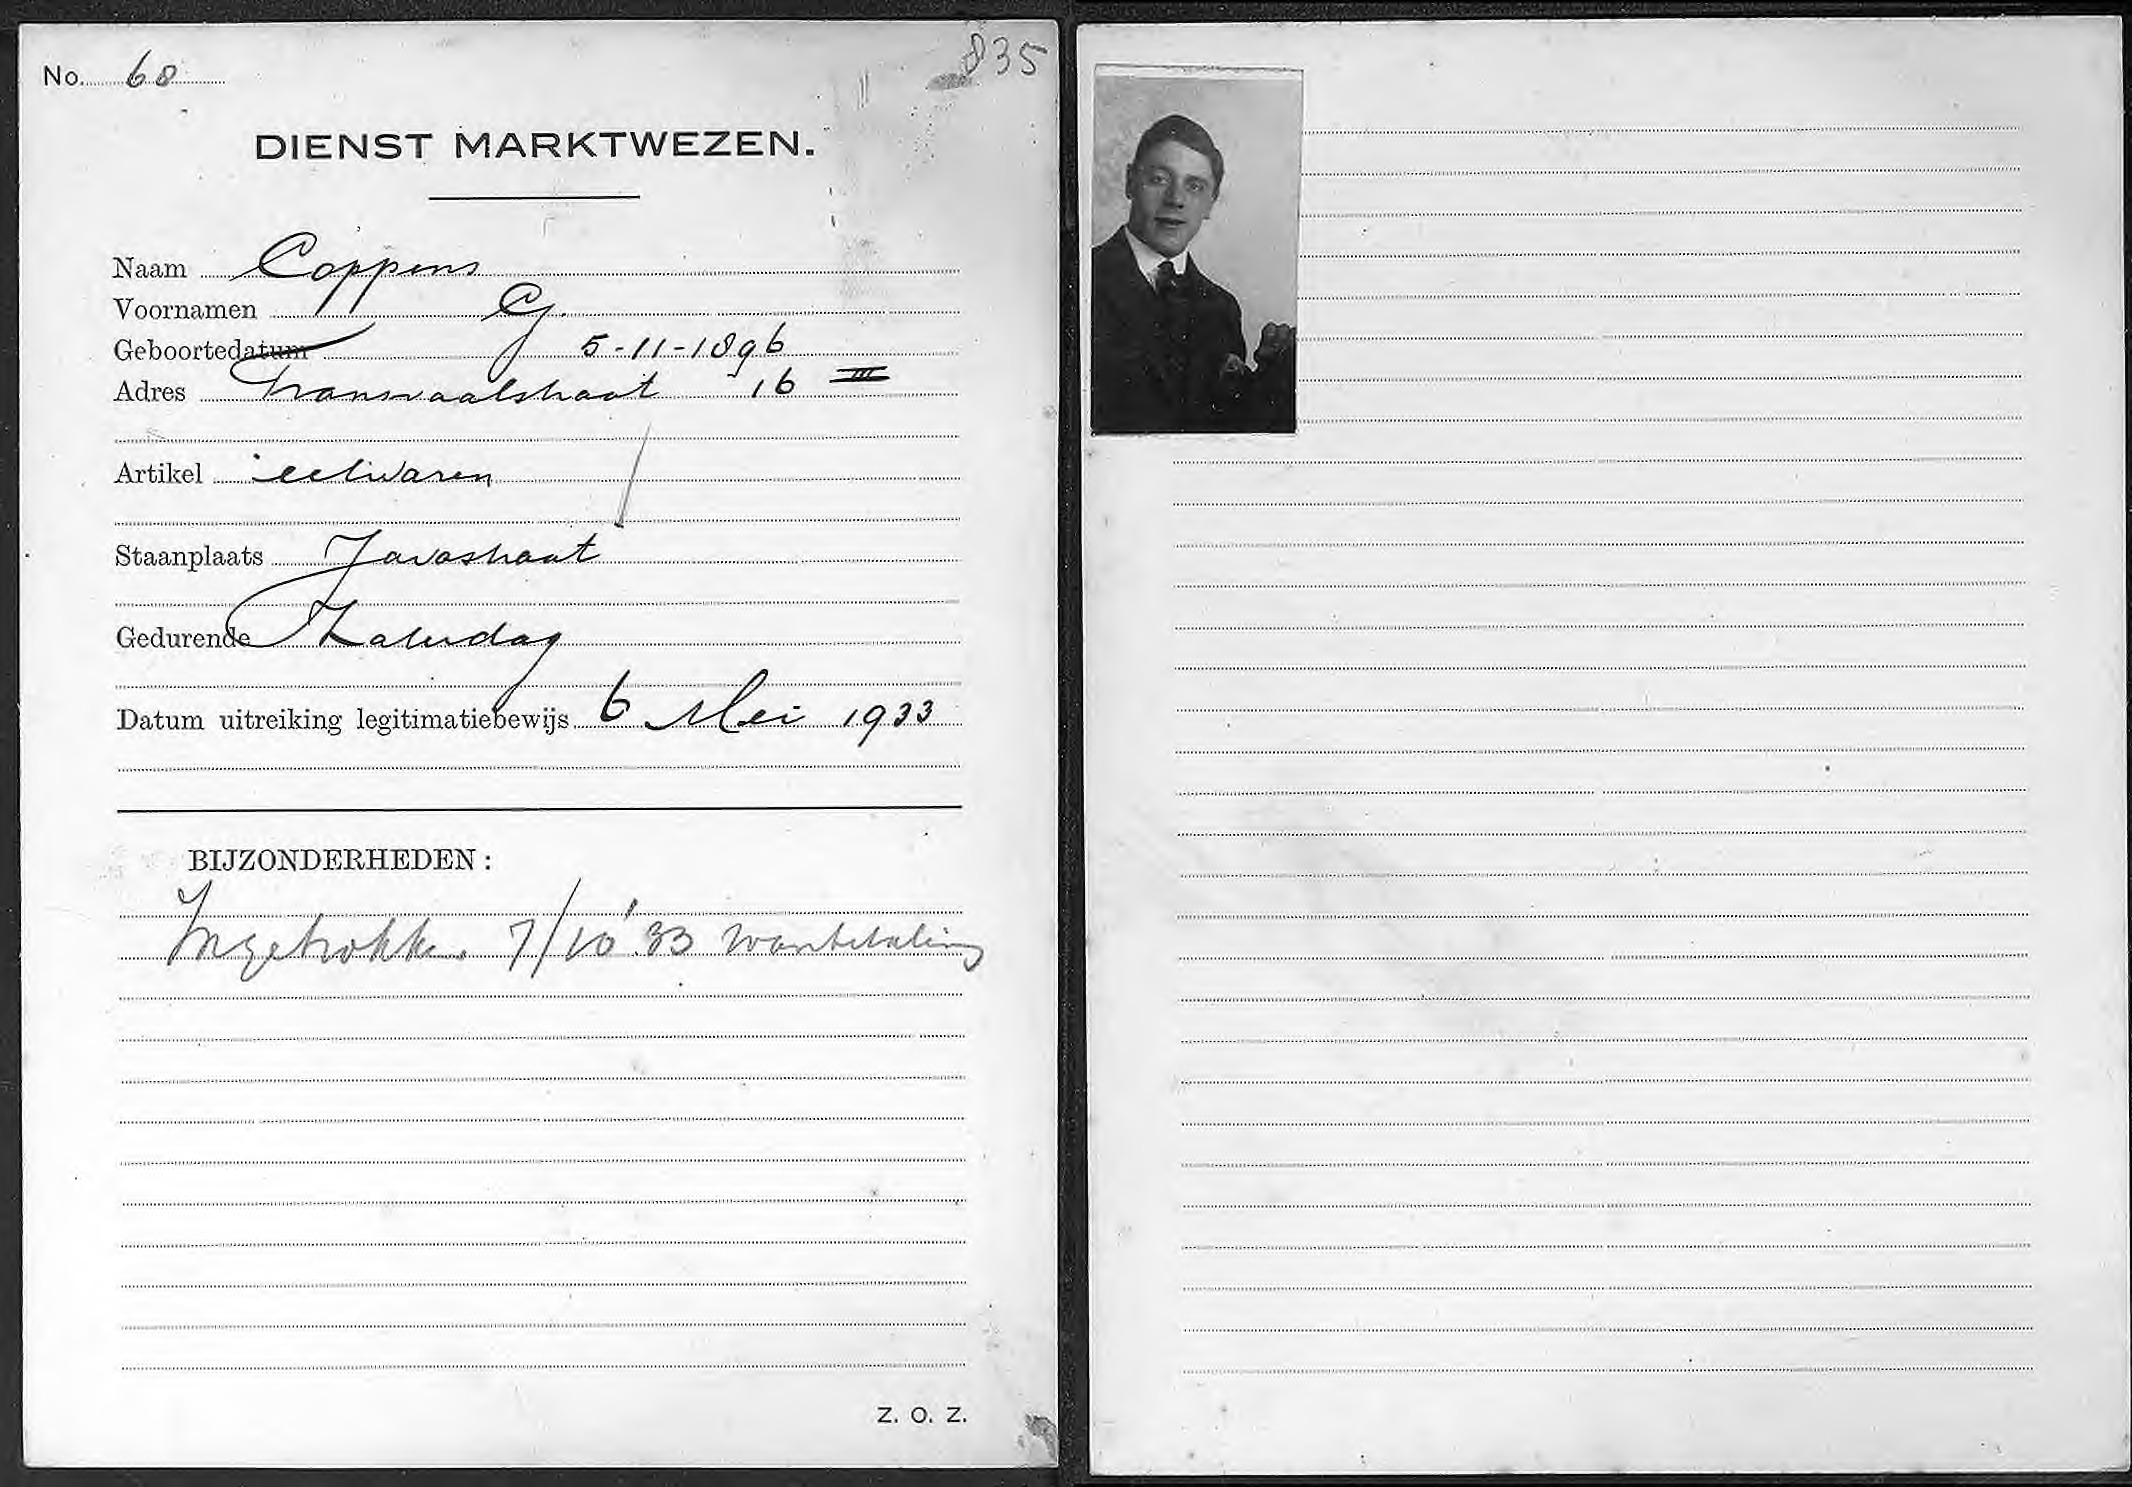 No. 68
835
DIENST MARKTWEZEN.
Naam Coppens
Voornamen G.
Geboortedatum 5-11-1896
Adres Transvaalstraat 16 III
Artikel eetwaren
Staanplaats Javastraat
Gedurende Zaterdag
Datum uitreiking legitimatiebewijs 6 Mei 1933
BIJZONDERHEDEN:
Ingetrokken 7/10 '33 wanbetaling
Z. O. Z.